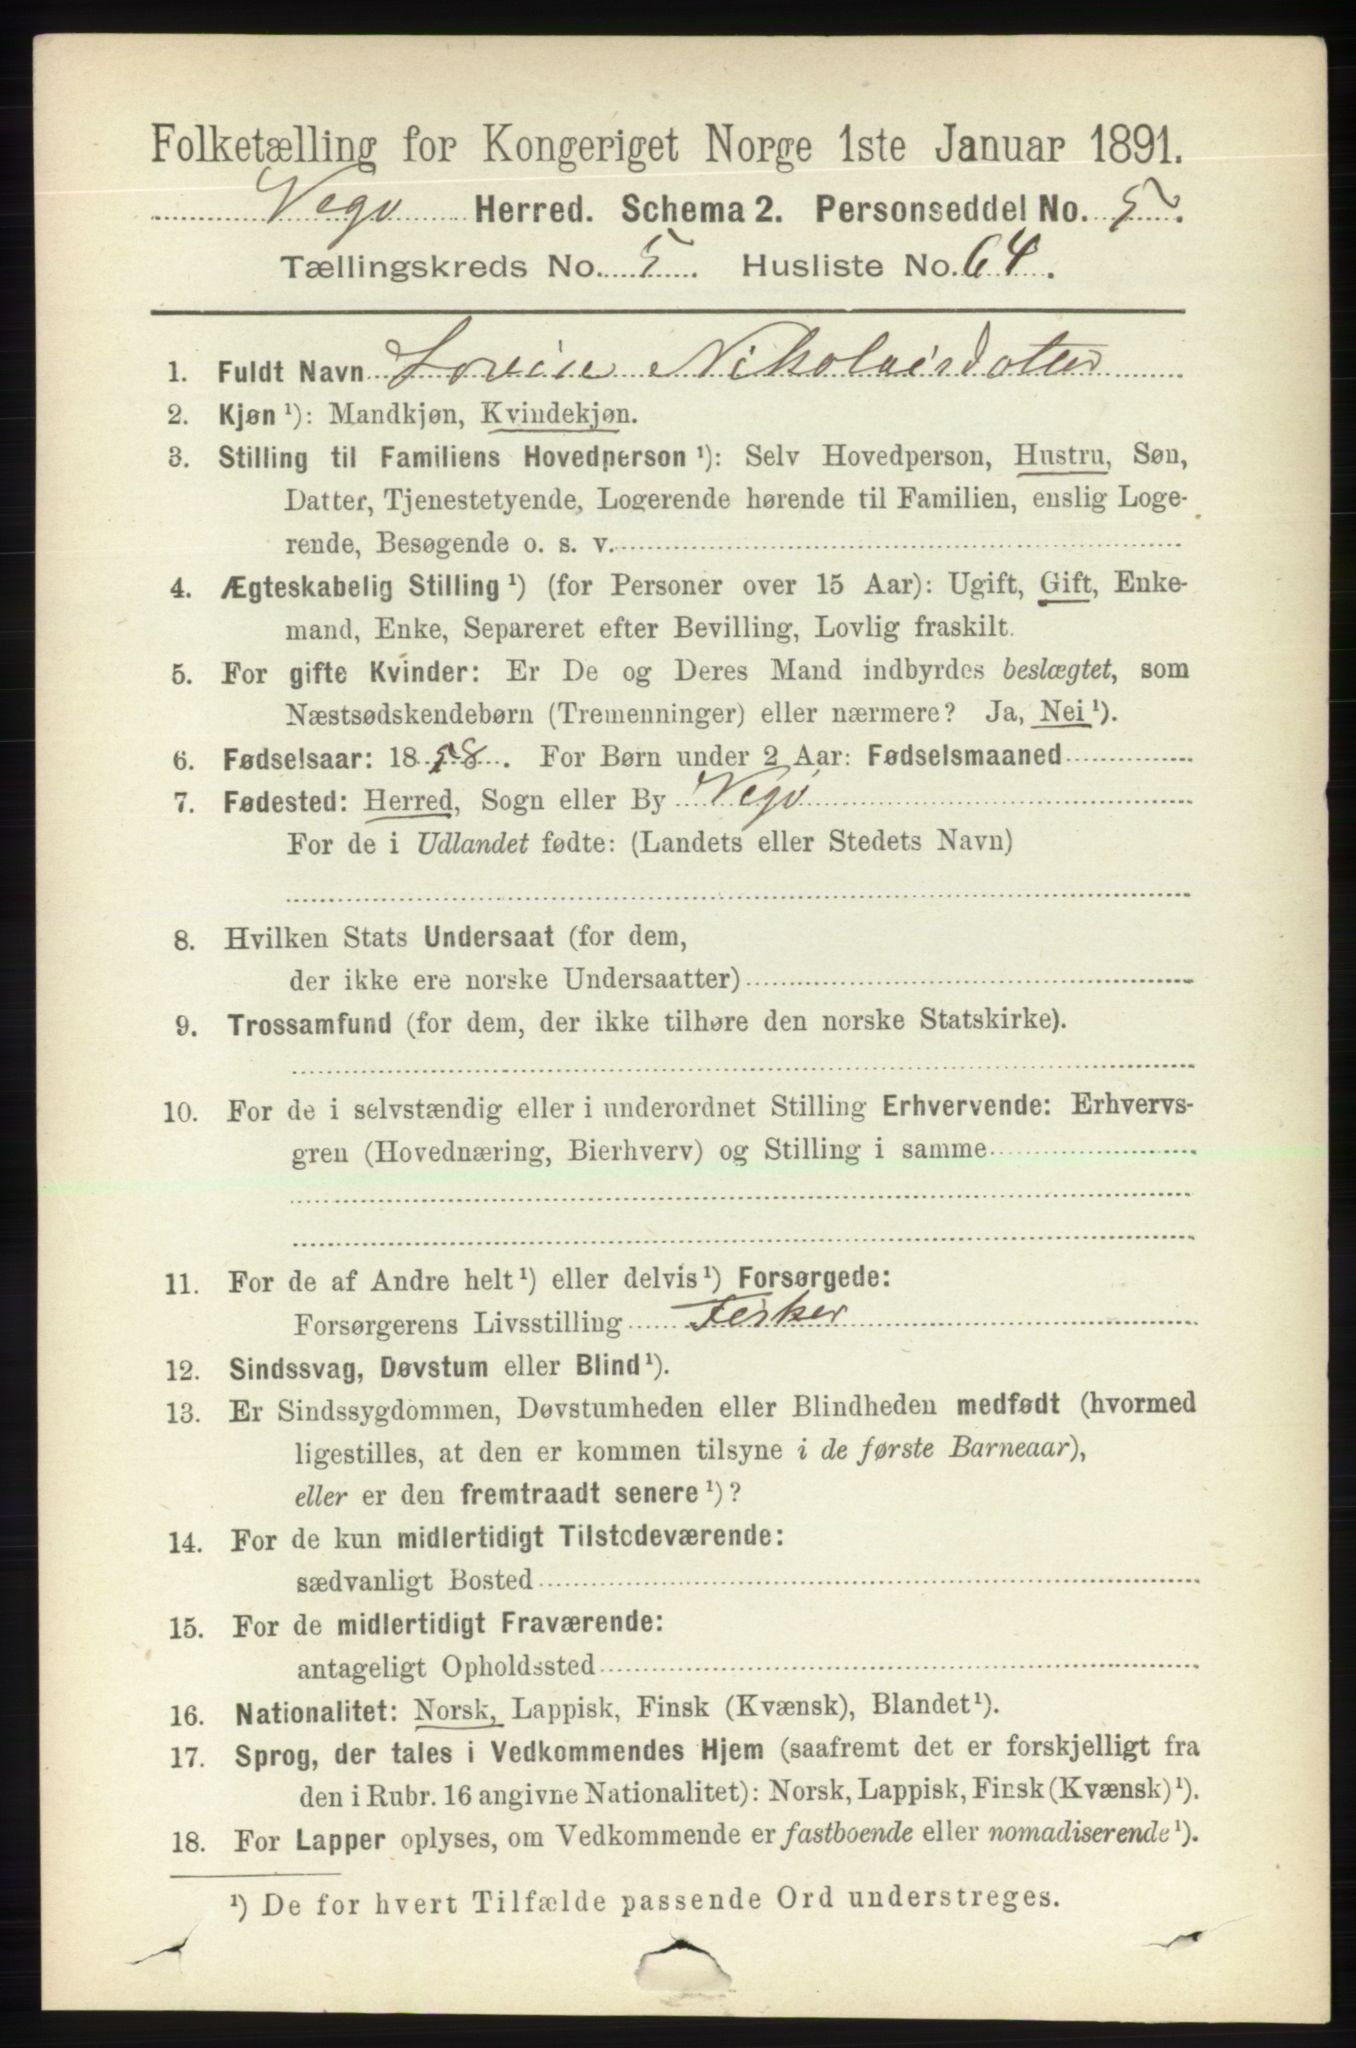 Folketælling for Kongeriget Norge 1ste Januar 1891.
Vegø Herred. Schema 2. Personseddel No. 5.
Tællingskreds No. 5. Husliste No. 64.
1. Fuldt Navn Lovise Nikolaisdotter
2. Kjøn ¹): Mandkjøn, Kvindekjøn.
3. Stilling til Familiens Hovedperson ¹): Selv Hovedperson, Hustru, Søn,
Datter, Tjenestetyende, Logerende hørende til Familien, enslig Loge-
rende, Besøgende o. s. v.
4. Ægteskabelig Stilling ¹) (for Personer over 15 Aar): Ugift, Gift, Enke-
mand, Enke, Separeret efter Bevilling, Lovlig fraskilt.
5. For gifte Kvinder: Er De og Deres Mand indbyrdes beslægtet, som
Næstsødskendebørn (Tremenninger) eller nærmere? Ja, Nei ¹).
6. Fødselsaar: 1858. For Børn under 2 Aar: Fødselsmaaned
7. Fødested: Herred, Sogn eller By Vegø
For de i Udlandet fødte: (Landets eller Stedets Navn)
8. Hvilken Stats Undersaat (for dem,
der ikke ere norske Undersaatter)
9. Trossamfund (for dem, der ikke tilhøre den norske Statskirke).
10. For de i selvstændig eller i underordnet Stilling Erhvervende: Erhvervs-
gren (Hovednæring, Bierhverv) og Stilling i samme
11. For de af Andre helt ¹) eller delvis ¹) Forsørgede:
Forsørgerens Livsstilling Fisker
12. Sindssvag, Døvstum eller Blind ¹).
13. Er Sindssygdommen, Døvstumheden eller Blindheden medfødt (hvormed
ligestilles, at den er kommen tilsyne i de første Barneaar),
eller er den fremtraadt senere ¹)?
14. For de kun midlertidigt Tilstedeværende:
sædvanligt Bosted
15. For de midlertidigt Fraværende:
antageligt Opholdssted
16. Nationalitet: Norsk, Lappisk, Finsk (Kvænsk), Blandet ¹).
17. Sprog, der tales i Vedkommendes Hjem (saafremt det er forskjelligt fra
den i Rubr. 16 angivne Nationalitet): Norsk, Lappisk, Finsk (Kvænsk) ¹).
18. For Lapper oplyses, om Vedkommende er fastboende eller nomadiserende ¹).
¹) De for hvert Tilfælde passende Ord understreges.